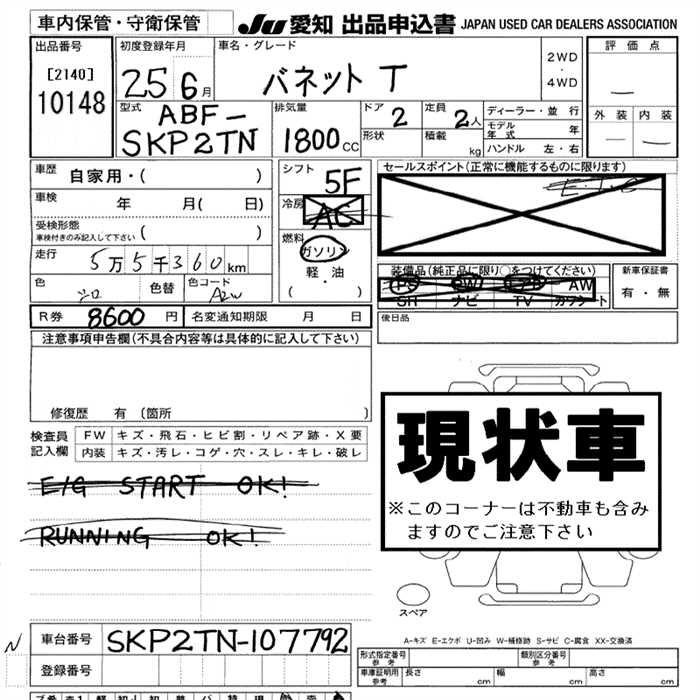 車内保管・守衛保管 JU 愛知 出品申込書 JAPAN USED CAR DEALERS ASSOCIATION
出品番号 初度登録年月 車名・グレード 評価点
[2140] 25 6月 バネット T 2WD・4WD —
10148
型式 ABF-SKP2TN 排気量 1800CC ドア 2 定員 2人 ディーラー・並行 外装 内装
形状 積載 kg モデル年式 年 — —
ハンドル 左・右
車歴 自家用・( ) シフト 5F セールスポイント(正常に機能するものに限ります)
車検 年 月( 日) 冷房 AC
受検形態 ( ) 燃料 ガソリン
車検付きのみ記入して下さい 軽・油
走行 5万5千360km ( ・ )
色 シロ 色替 色コード
装備品(純正品に限り○をつけてください) 新車保証書
PS PW AW 有・無
SH ナビ TV
R券 8600円 名変通知期限 月 日 後日品
注意事項申告欄(不具合内容等は具体的に記入して下さい)
修復歴 有 (箇所 )
検査員記入欄 FW キズ・飛石・ヒビ割・リペア跡・X要
内装 キズ・汚レ・コゲ・穴・スレ・キレ・破レ
E/G START OK!
RUNNING OK!
現状車
※このコーナーは不動車も含み
ますのでご注意下さい
スペア
A-キズ E-エクボ U-凹み W-補修跡 S-サビ C-腐食 XX-交換済
N
車台番号 SKP2TN-107792
登録番号
形式指定番号 参考 類別区分番号 参考
車庫証明用 参考 長さ cm 幅 cm 高さ cm